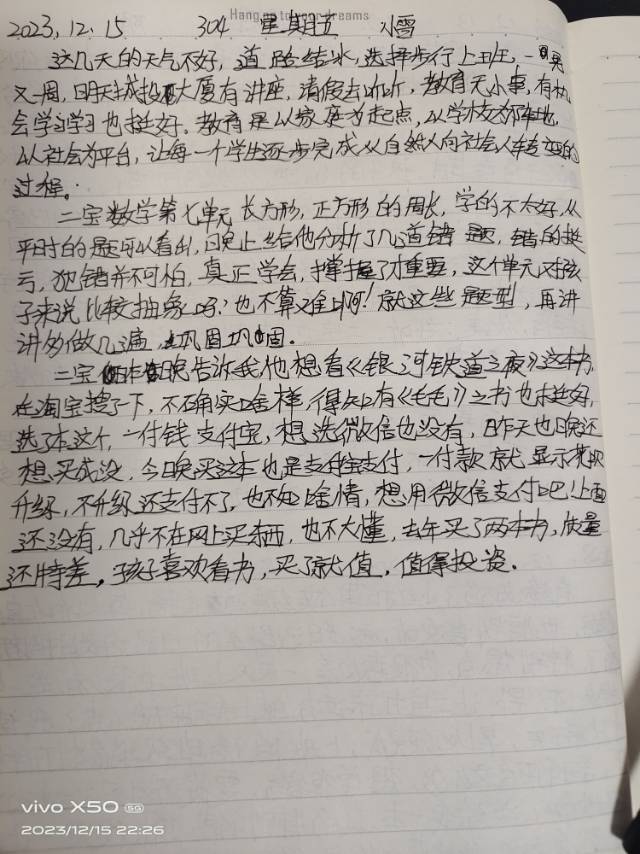 Hang on to your dreams
2023.12.15 304 星期五 小雪
这几天的天气不好，道路结冰，选择步行上班，一晃
又一周，明天城投大厦有讲座，请假去听听，教育无小事，有机
会学习学习也挺好。教育是以家庭为起点，以学校为阵地，
以社会为平台，让每一个学生逐步完成从自然人向社会人转变的
过程。
二宝数学第七单元长方形，正方形的周长，学的不太好，从
平时的题可以看出，晚上给他分析了几道错题，错的挺
亏，犯错并不可怕，真正学会，掌握了才重要，这个单元对孩
子来说比较抽象吗？也不算难啊！就这些题型，再讲
讲多做几遍，巩固巩固。
二宝昨晚告诉我他想看《银河铁道之夜》这本书，
在淘宝搜了下，不确实啥样，得知有《毛毛》之书也挺好，
选了本这个，一付钱支付宝，想选微信也没有，昨天也晚还
想买成没，今日晚买这本也是支付宝支付，一付款就显示
升级，不升级还支付不了，也不知啥情，想用微信支付吧！上面
还没有，几乎不在网上买东西，也不大懂，去年买了两本书，质量
还特差，孩子喜欢看书，买了就值，值得投资。
vivo X50 5G
2023/12/15 22:26